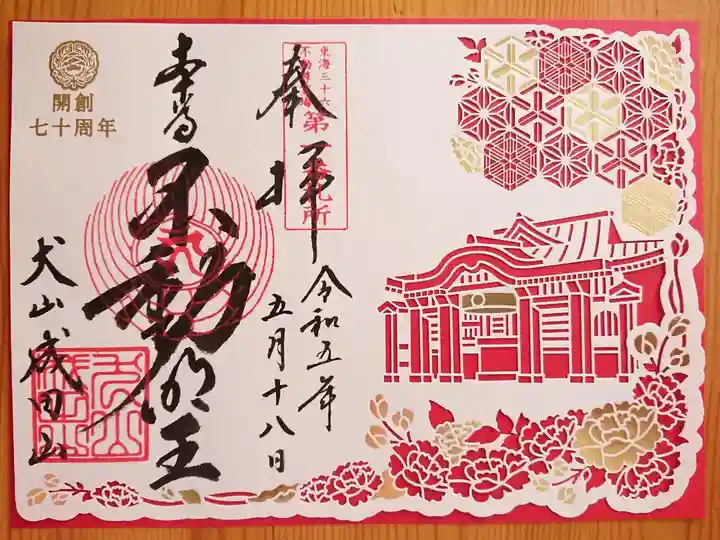 東海三十六
不動尊
第一番札所
奉拝
令和五年
五月十八日
本尊
不動明王
犬山成田山
開創
七十周年